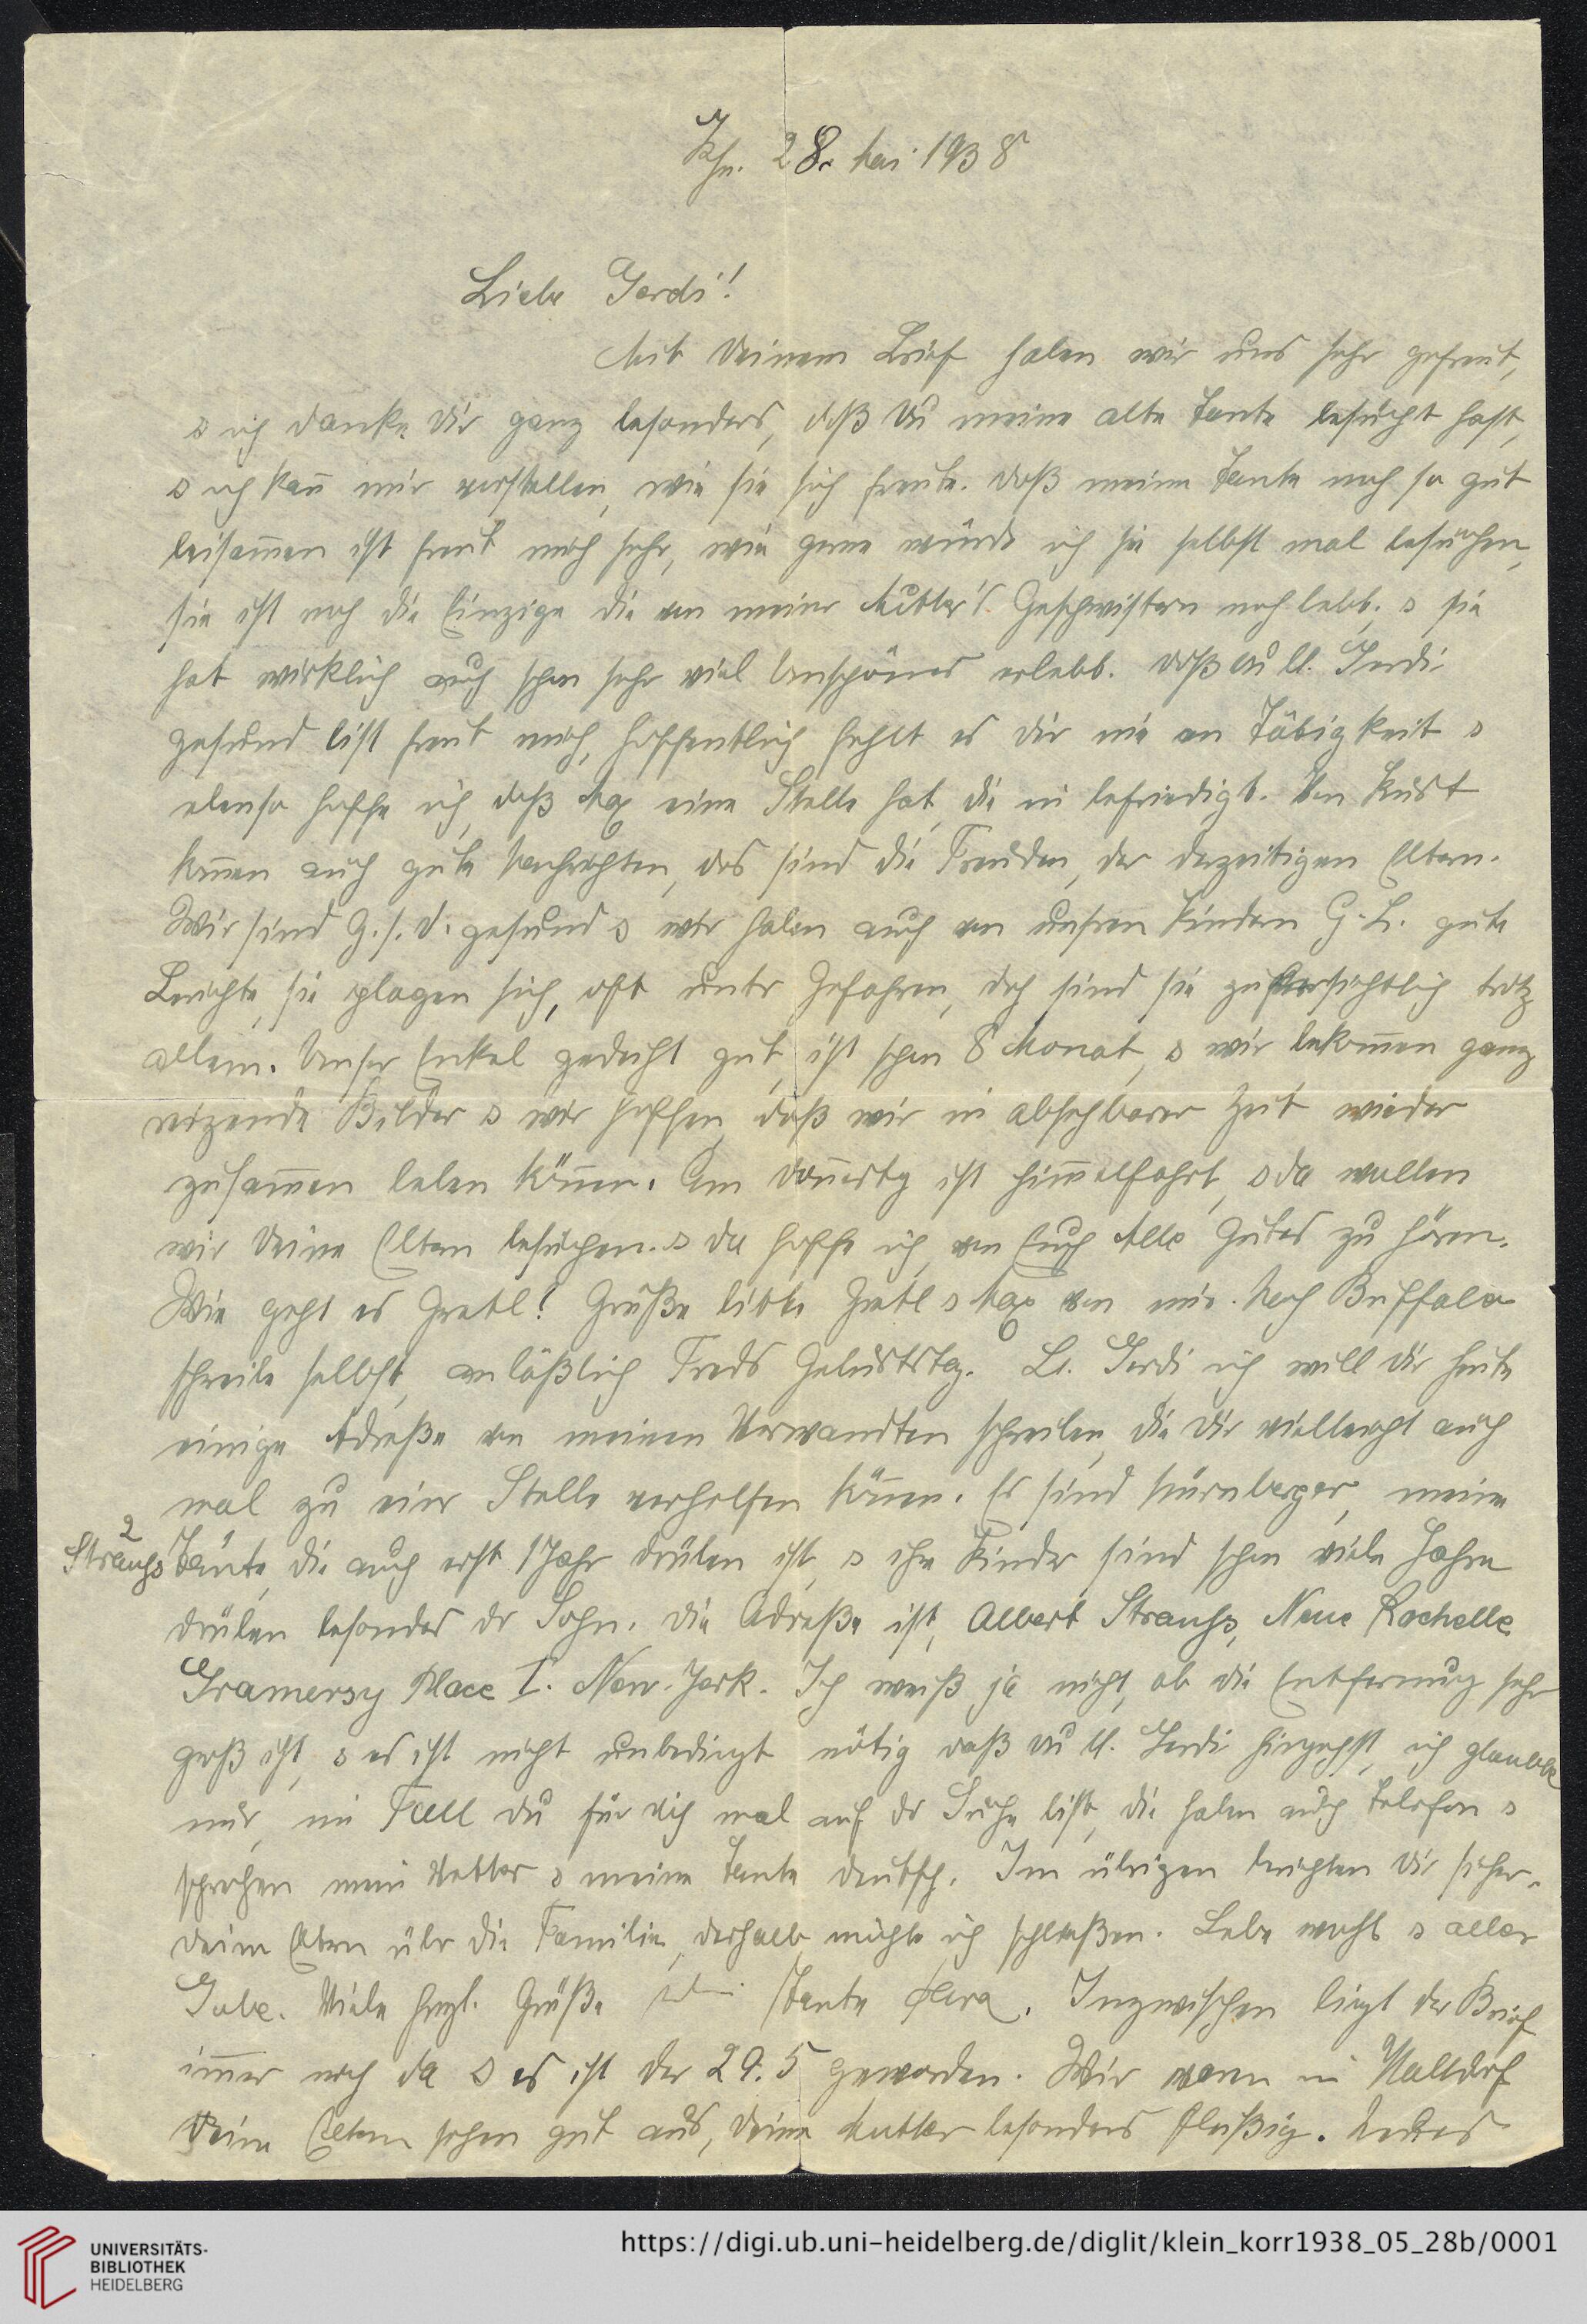 28. Mai 1938
Liebe Gerdi!
Mit Deinem Brief haben wir uns sehr gefreut,
& ich danke Dir ganz besonders, daß Du meine alte Tante besucht hast,
& ich kann mir vorstellen, wie sie sich freute. Daß meine Tante noch so gut
beisammen ist freut mich sehr, wie gerne würde ich sie selbst mal besuchen,
sie ist noch die Einzige die von meiner Mutter's Geschwistern noch lebt, & sie
hat wirklich auch schon sehr viel Unschönes erlebt. Daß Du lb. Gerdi
gesund bist freut mich, hoffentlich fehlt es Dir nie an Tätigkeit &
ebenso hoffe ich, daß Max eine Stelle hat, die in befriedigt. Von Kurt
kommen auch gute Nachrichten, das sind die Freuden, der derzeitigen Eltern.
Wir sind G. s. D. gesund & wir haben auch von unsren Kindern G. L. gute
Berichte, sie plagen sich, oft unter Gefahren, doch sind sie zuversichtlich trotz
allem. Unser Enkel gedeiht gut, ist schon 8 Monat, & wir bekommen ganz
reizende Bilder & wir hoffen, daß wir in absehbarer Zeit wieder
zusammen leben können. Am Donnerstg ist Himmelfahrt, & da wollen
wir Deine Eltern besuchen. & da hoffe ich, von Euch Alle Gutes zu hören.
Wie geht es Gretl? Grüße bitte Gretl & Max von mir. Nach Buffalo
schreibe selbst, anläßlich Freds Geburtstg. Lb. Gerdi ich will Dir heute
einige Adreße von meinen Verwandten schreiben, die Dir vielleicht auch
mal zu einer Stelle verhelfen können. Es sind Nürnberger, meine
2
Strauß Tante, die auch erst 1 Jahr drüben ist, & ihre Kinder sind schon viele Jahre
drüben besonders der Sohn. Die Adreße ist, Albert Strauß, Neue Rochelle
Gramersy Place I. New-York. Ich weiß ja nicht, ob die Entfernung sehr
groß ist, & es ist nicht unbedingt nötig daß Du lb. Gerdi hingehst, ich glaubbe
nur, im Fall Du für Dich mal auf der Suche bist, die haben auch Telefon &
sprechen mein Vetter & meine Tante deutsch. Im übrigen berichten Dir sicher
Deine Eltern über die Familie, deshalb möchte ich schließen. Lebe wohl & alles
Gute. Viele herzl. Grüße Tante Flora. Inzwischen liegt der Brief
immer noch da & es ist der 29. 5 geworden. Wir waren in Walldorf
Deine Eltern sehen gut aus, Deine Mutter besonders
UNIVERSITÄTS-
BIBLIOTHEK
HEIDELBERG
https://digi.ub.uni-heidelberg.de/diglit/klein_korr1938_05_28b/0001